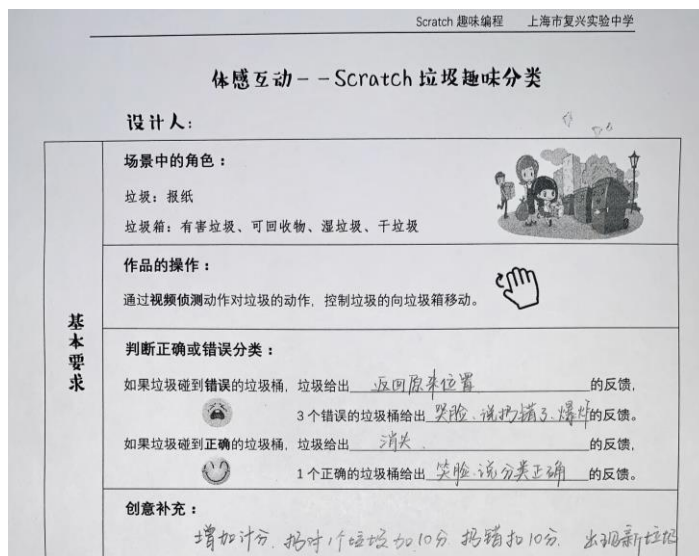 Scratch 趣味编程 上海市复兴实验中学
体感互动--Scratch 垃圾趣味分类
设计人：
场景中的角色：
垃圾：报纸
垃圾箱：有害垃圾、可回收物、湿垃圾、干垃圾
作品的操作：
通过视频侦测动作对垃圾的动作，控制垃圾的向垃圾箱移动。
基本要求
判断正确或错误分类：
如果垃圾碰到错误的垃圾桶，垃圾给出 返回原来位置 的反馈，
3 个错误的垃圾桶给出 哭脸、说扔错了、爆炸 的反馈。
如果垃圾碰到正确的垃圾桶，垃圾给出 消失 的反馈，
1 个正确的垃圾桶给出 笑脸、说分类正确 的反馈。
创意补充：
增加计分，扔对1个垃圾加10分，扔错扣10分，出现新垃圾